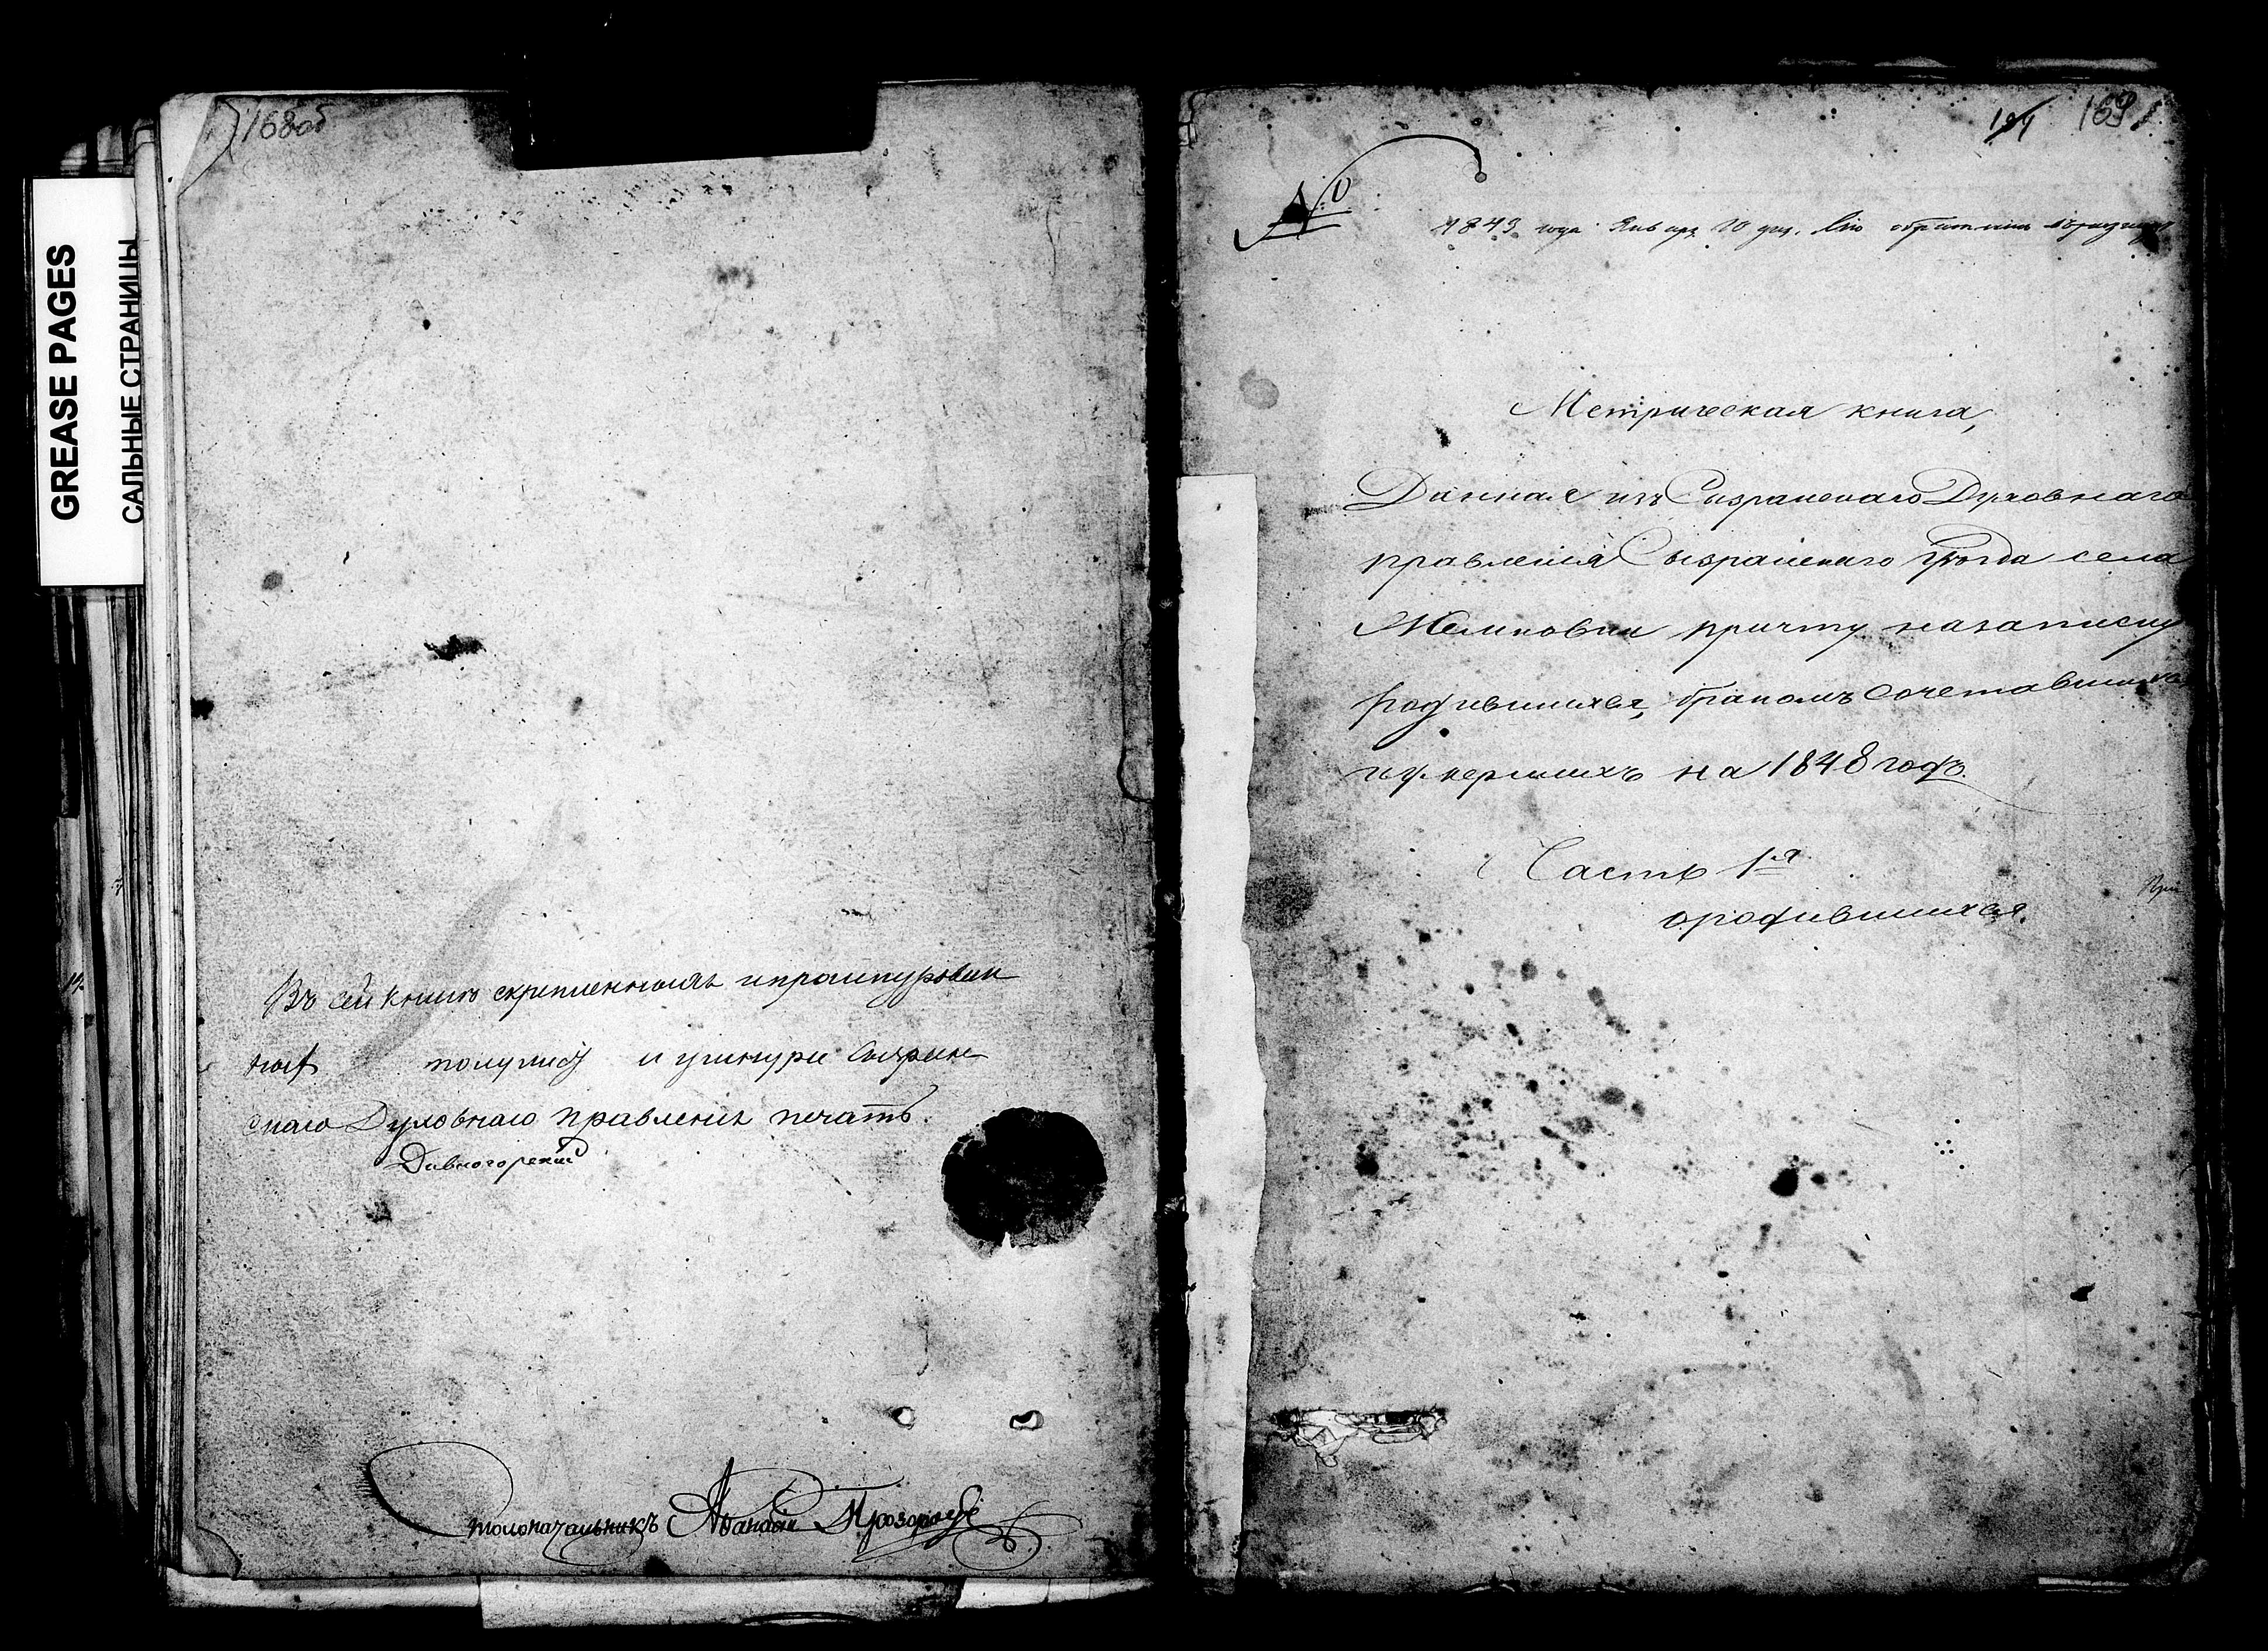 GREASE PAGES
САЛЬНЫЕ СТРАНИЦЫ
168об
Въ сей книгѣ скрѣпленныхъ и прошнурован
ныхъ полулис и у шнура Сызран
скаго Духовнаго Правленія печать.
Дивногорскій
Столоначальникъ Аѳанасій Прозоровъ
194 169
№
1849 года Января 10 дня.
Метрическая книга,
Данная изъ Сызранскаго Духовнаго
правленія Сызранскаго уѣзда села
причту на записку
родившихся, бракомъ сочетавшихся
и умершихъ на 1848 годъ.
Часть 1я
о родившихся.
При